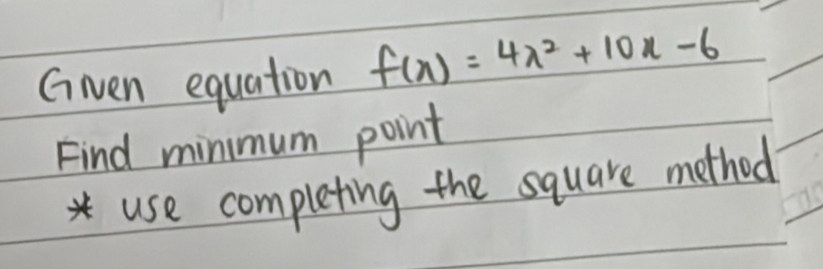 Given equation f(x) = 4x² + 10x - 6
Find minimum point
* use completing the square method